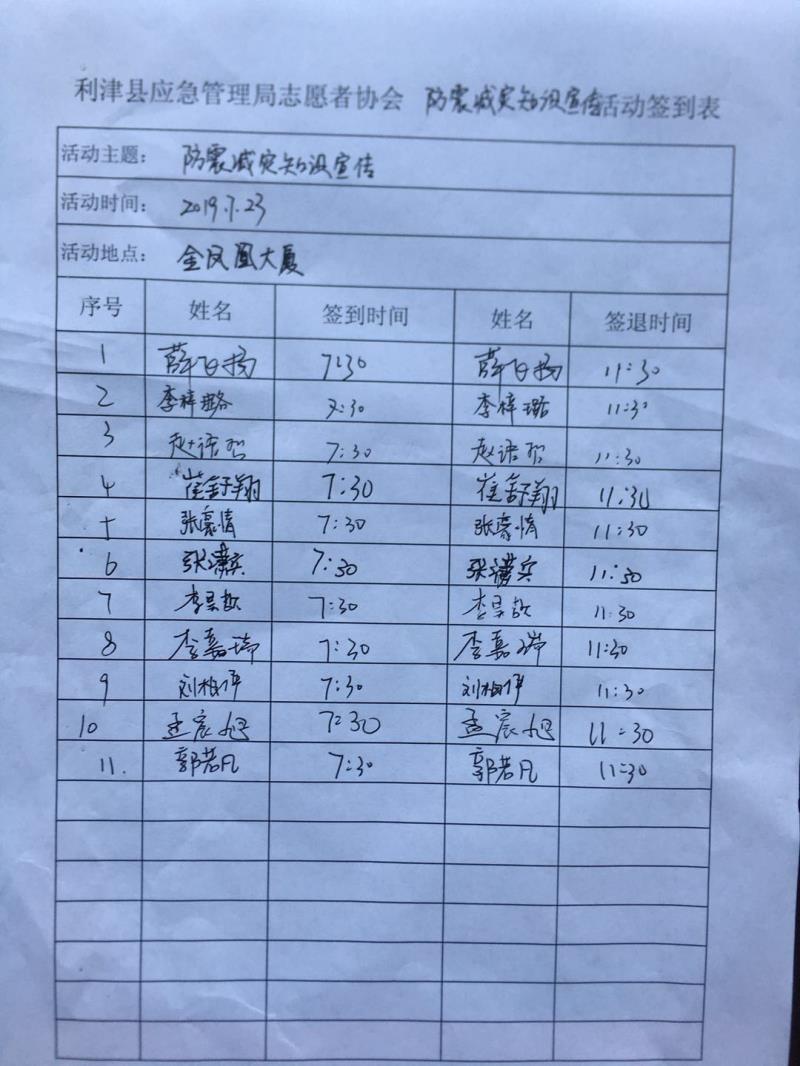 利津县应急管理局志愿者协会 防震减灾知识宣传活动签到表
活动主题： 防震减灾知识宣传
活动时间： 2019.7.23
活动地点： 金凤凰大厦
序号 姓名 签到时间 姓名 签退时间
1 薛飞扬 7:30 薛飞扬 11:30
2 李梓璐 7:30 李梓璐 11:30
3 赵语 7:30 赵语 11:30
4 崔舒翔 7:30 崔舒翔 11:30
5 张豪情 7:30 张豪情 11:30
6 张潇兵 7:30 张潇兵 11:30
7 李昊哲 7:30 李昊哲 11:30
8 李嘉瑞 7:30 李嘉瑞 11:30
9 刘柏 7:30 刘柏 11:30
10 孟宸旭 7:30 孟宸旭 11:30
11. 郭若凡 7:30 郭若凡 11:30